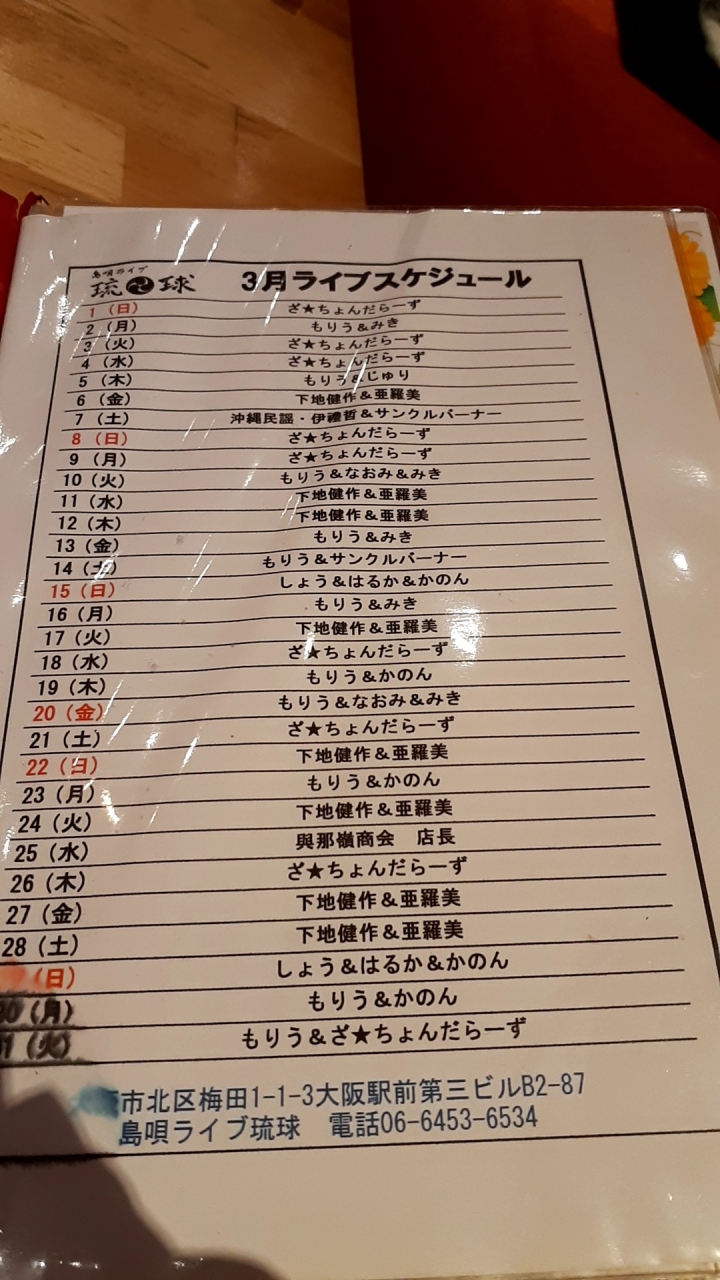 島唄ライブ
琉球 3月ライブスケジュール
1（日） ざ★ちょんだらーず
2（月） もりう&みき
3（火） ざ★ちょんだらーず
4（水） ざ★ちょんだらーず
5（木） もりう&じゅり
6（金） 下地健作&亜羅美
7（土） 沖縄民謡・伊禮哲&サンクルバーナー
8（日） ざ★ちょんだらーず
9（月） ざ★ちょんだらーず
10（火） もりう&なおみ&みき
11（水） 下地健作&亜羅美
12（木） 下地健作&亜羅美
13（金） もりう&みき
14（土） もりう&サンクルバーナー
15（日） しょう&はるか&かのん
16（月） もりう&みき
17（火） 下地健作&亜羅美
18（水） ざ★ちょんだらーず
19（木） もりう&かのん
20（金） もりう&なおみ&みき
21（土） ざ★ちょんだらーず
22（日） 下地健作&亜羅美
23（月） もりう&かのん
24（火） 下地健作&亜羅美
25（水） 與那嶺商会 店長
26（木） ざ★ちょんだらーず
27（金） 下地健作&亜羅美
28（土） 下地健作&亜羅美
（日） しょう&はるか&かのん
0（月） もりう&かのん
1（火） もりう&ざ★ちょんだらーず
市北区梅田1-1-3大阪駅前第三ビルB2-87
島唄ライブ琉球 電話06-6453-6534